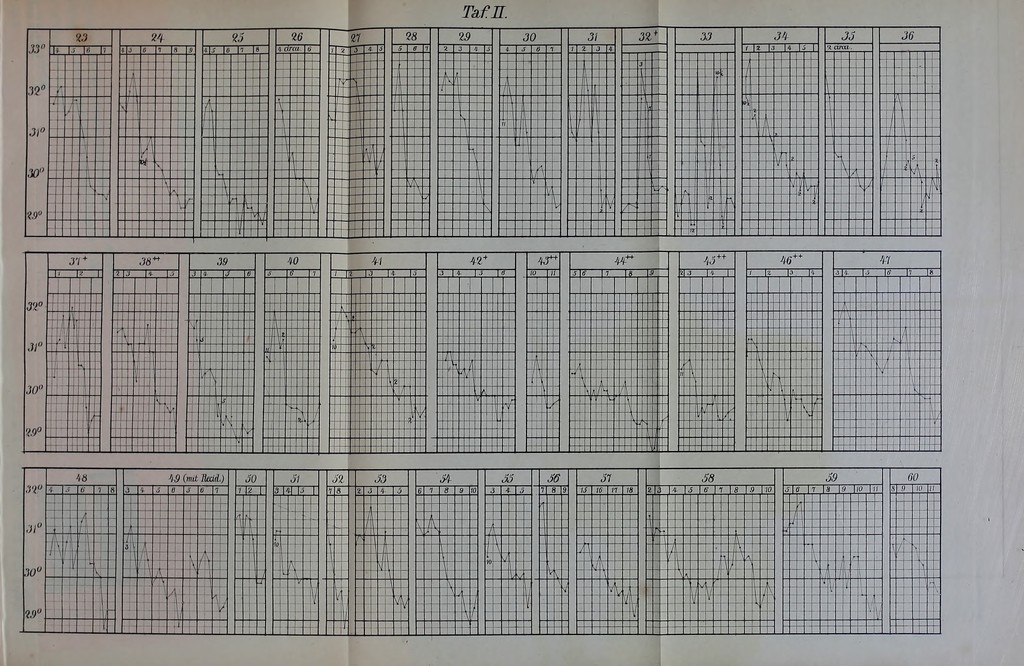 Taf. II.
23 24 25 26 27 28 29 30 31 32+ 33 34 35 36
4 5 6 7 4 5 6 7 8 9 4 5 6 7 8 4 circa 6 1 2 3 4 5 5 6 7 2 3 4 5 4 5 6 7 1 2 3 4 1 2 3 4 5 2 circa
33°
32°
31°
30°
29°
37+ 38++ 39 40 41 42+ 43++ 44++ 45++ 46++ 47
1 2 2 3 4 5 3 4 5 6 5 6 7 1 2 3 4 5 3 4 5 6 10 11 5 6 7 8 9 2 3 4 1 2 3 4 3 4 5 6 7 8
32°
31°
30°
29°
48 49 (mit Recid.) 50 51 52 53 54 55 56 57 58 59 60
4 5 6 7 8 3 4 5 6 5 6 7 1 2 3 4 5 7 8 2 3 4 5 6 7 8 9 10 3 4 5 7 8 9 15 16 17 18 2 3 4 5 6 7 8 9 10 5 6 7 8 9 10 11 8 9 10 11
32°
31°
30°
29°